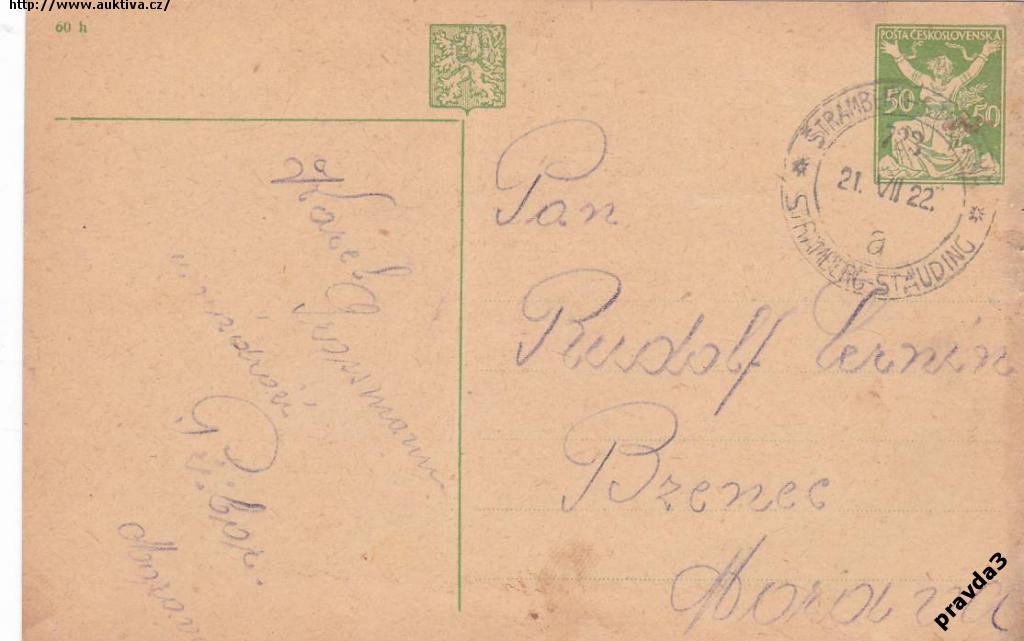 http://www.auktiva.cz/
60 h
POŠTA ČESKOSLOVENSKÁ
50 50
ŠTRAMBERK
21. VII 22.
a
STRAMBERG-STAUDING
Pan
Rudolf Černín
Bzenec
Morava
Karel
u nádraží
Příbor.
Morava
pravda3